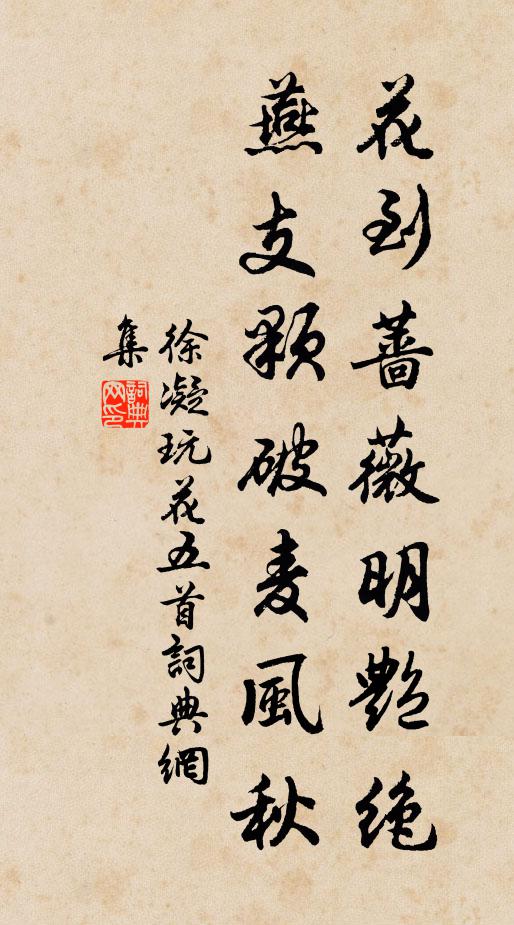 花到薔薇明艷絶
燕支顆破麦風秋
徐凝玩花五首詞典網
集
詞典網印